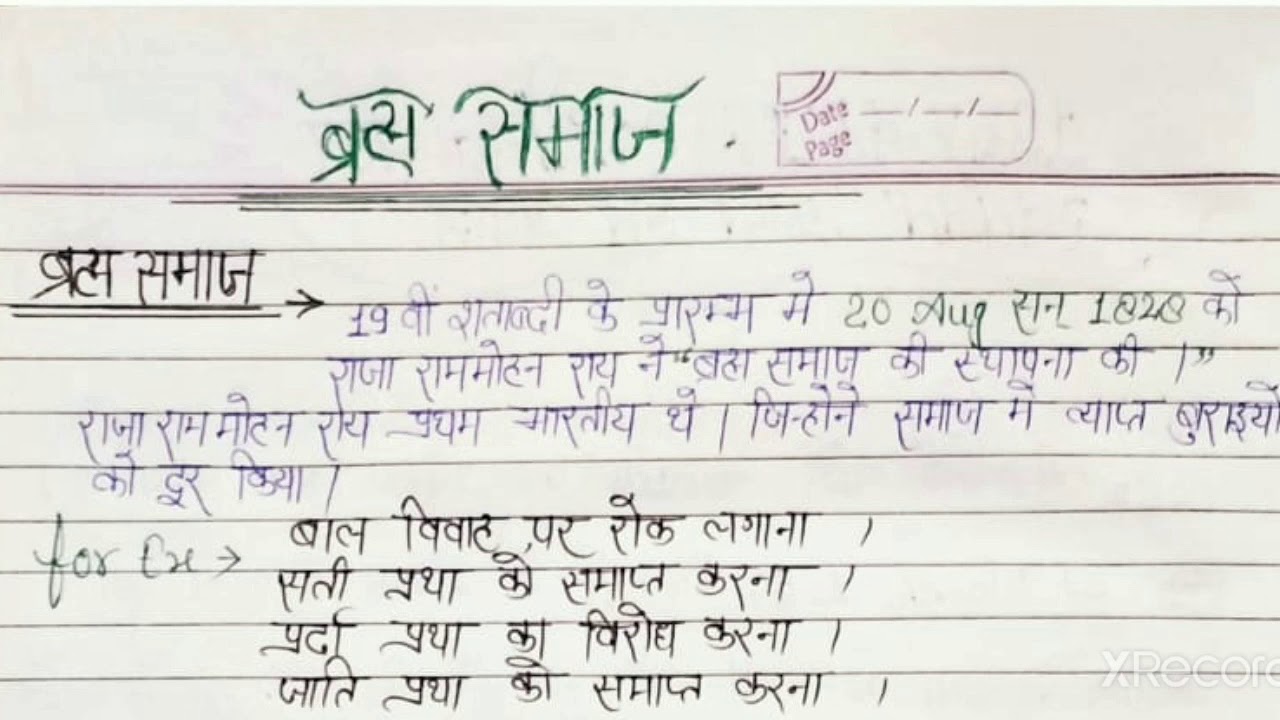 ब्रह्म समाज .
Date __/__/__
Page
ब्रह्म समाज → 19 वीं शताब्दी के प्रारम्भ मे 20 Aug सन् 1828 को
राजा राममोहन राय ने "ब्रह्म समाज की स्थापना की ।"
राजा राम मोहन रोय प्रथम भारतीय थे । जिन्होने समाज मे व्याप्त बुराइयों
को दूर किया ।
for Ex → बाल विवाह पर रोक लगाना ।
सती प्रथा को समाप्त करना ।
पर्दा प्रथा का विरोध करना ।
जाति प्रथा को समाप्त करना ।
XRecord